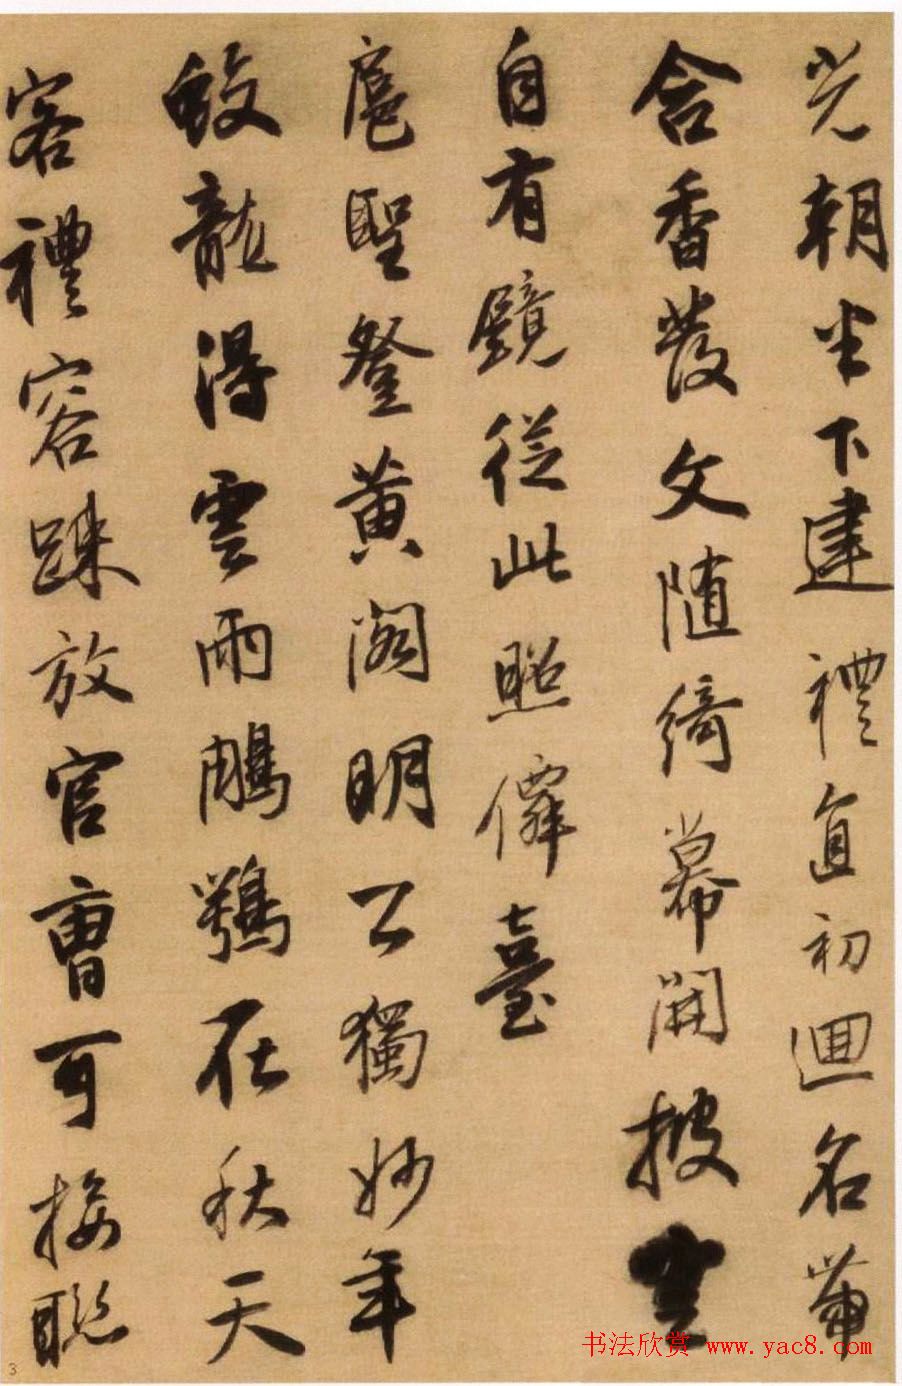 光朝半下建禮直初迴名帶
含香發文隨綺幕開披雲
自有鏡從此照僊臺
扈聖登黃閣明公獨妙年
蛟龍得雲雨鵰鶚在秋天
客禮容踈放官曹可接聯
3
书法欣赏 www.yac8.com